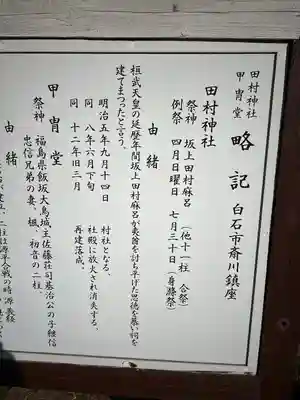 田村神社
甲冑堂
略記 白石市斎川鎮座
田村神社
祭神 坂上田村麻呂 (他十一柱 合祭)
例祭 四月日曜日 七月三十日(身隱祭)
由緒
桓武天皇の延歴年間坂上田村麻呂が夷酋を討ち平げた恩徳を慕い祠を
建てまつったと言う。
明治五年九月十四日 村社となる。
同 八年六月下旬 社殿に放火され消失する。
同 十二年旧三月 再建落成。
甲冑堂
祭神 福島県飯坂大鳥城主佐藤荘司基治公の子継信
忠信兄弟の妻、楓、初音の二柱。
由緒